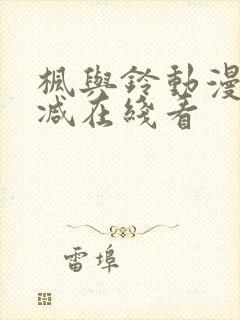 楓與鈴動漫
减在綫看
雷埠